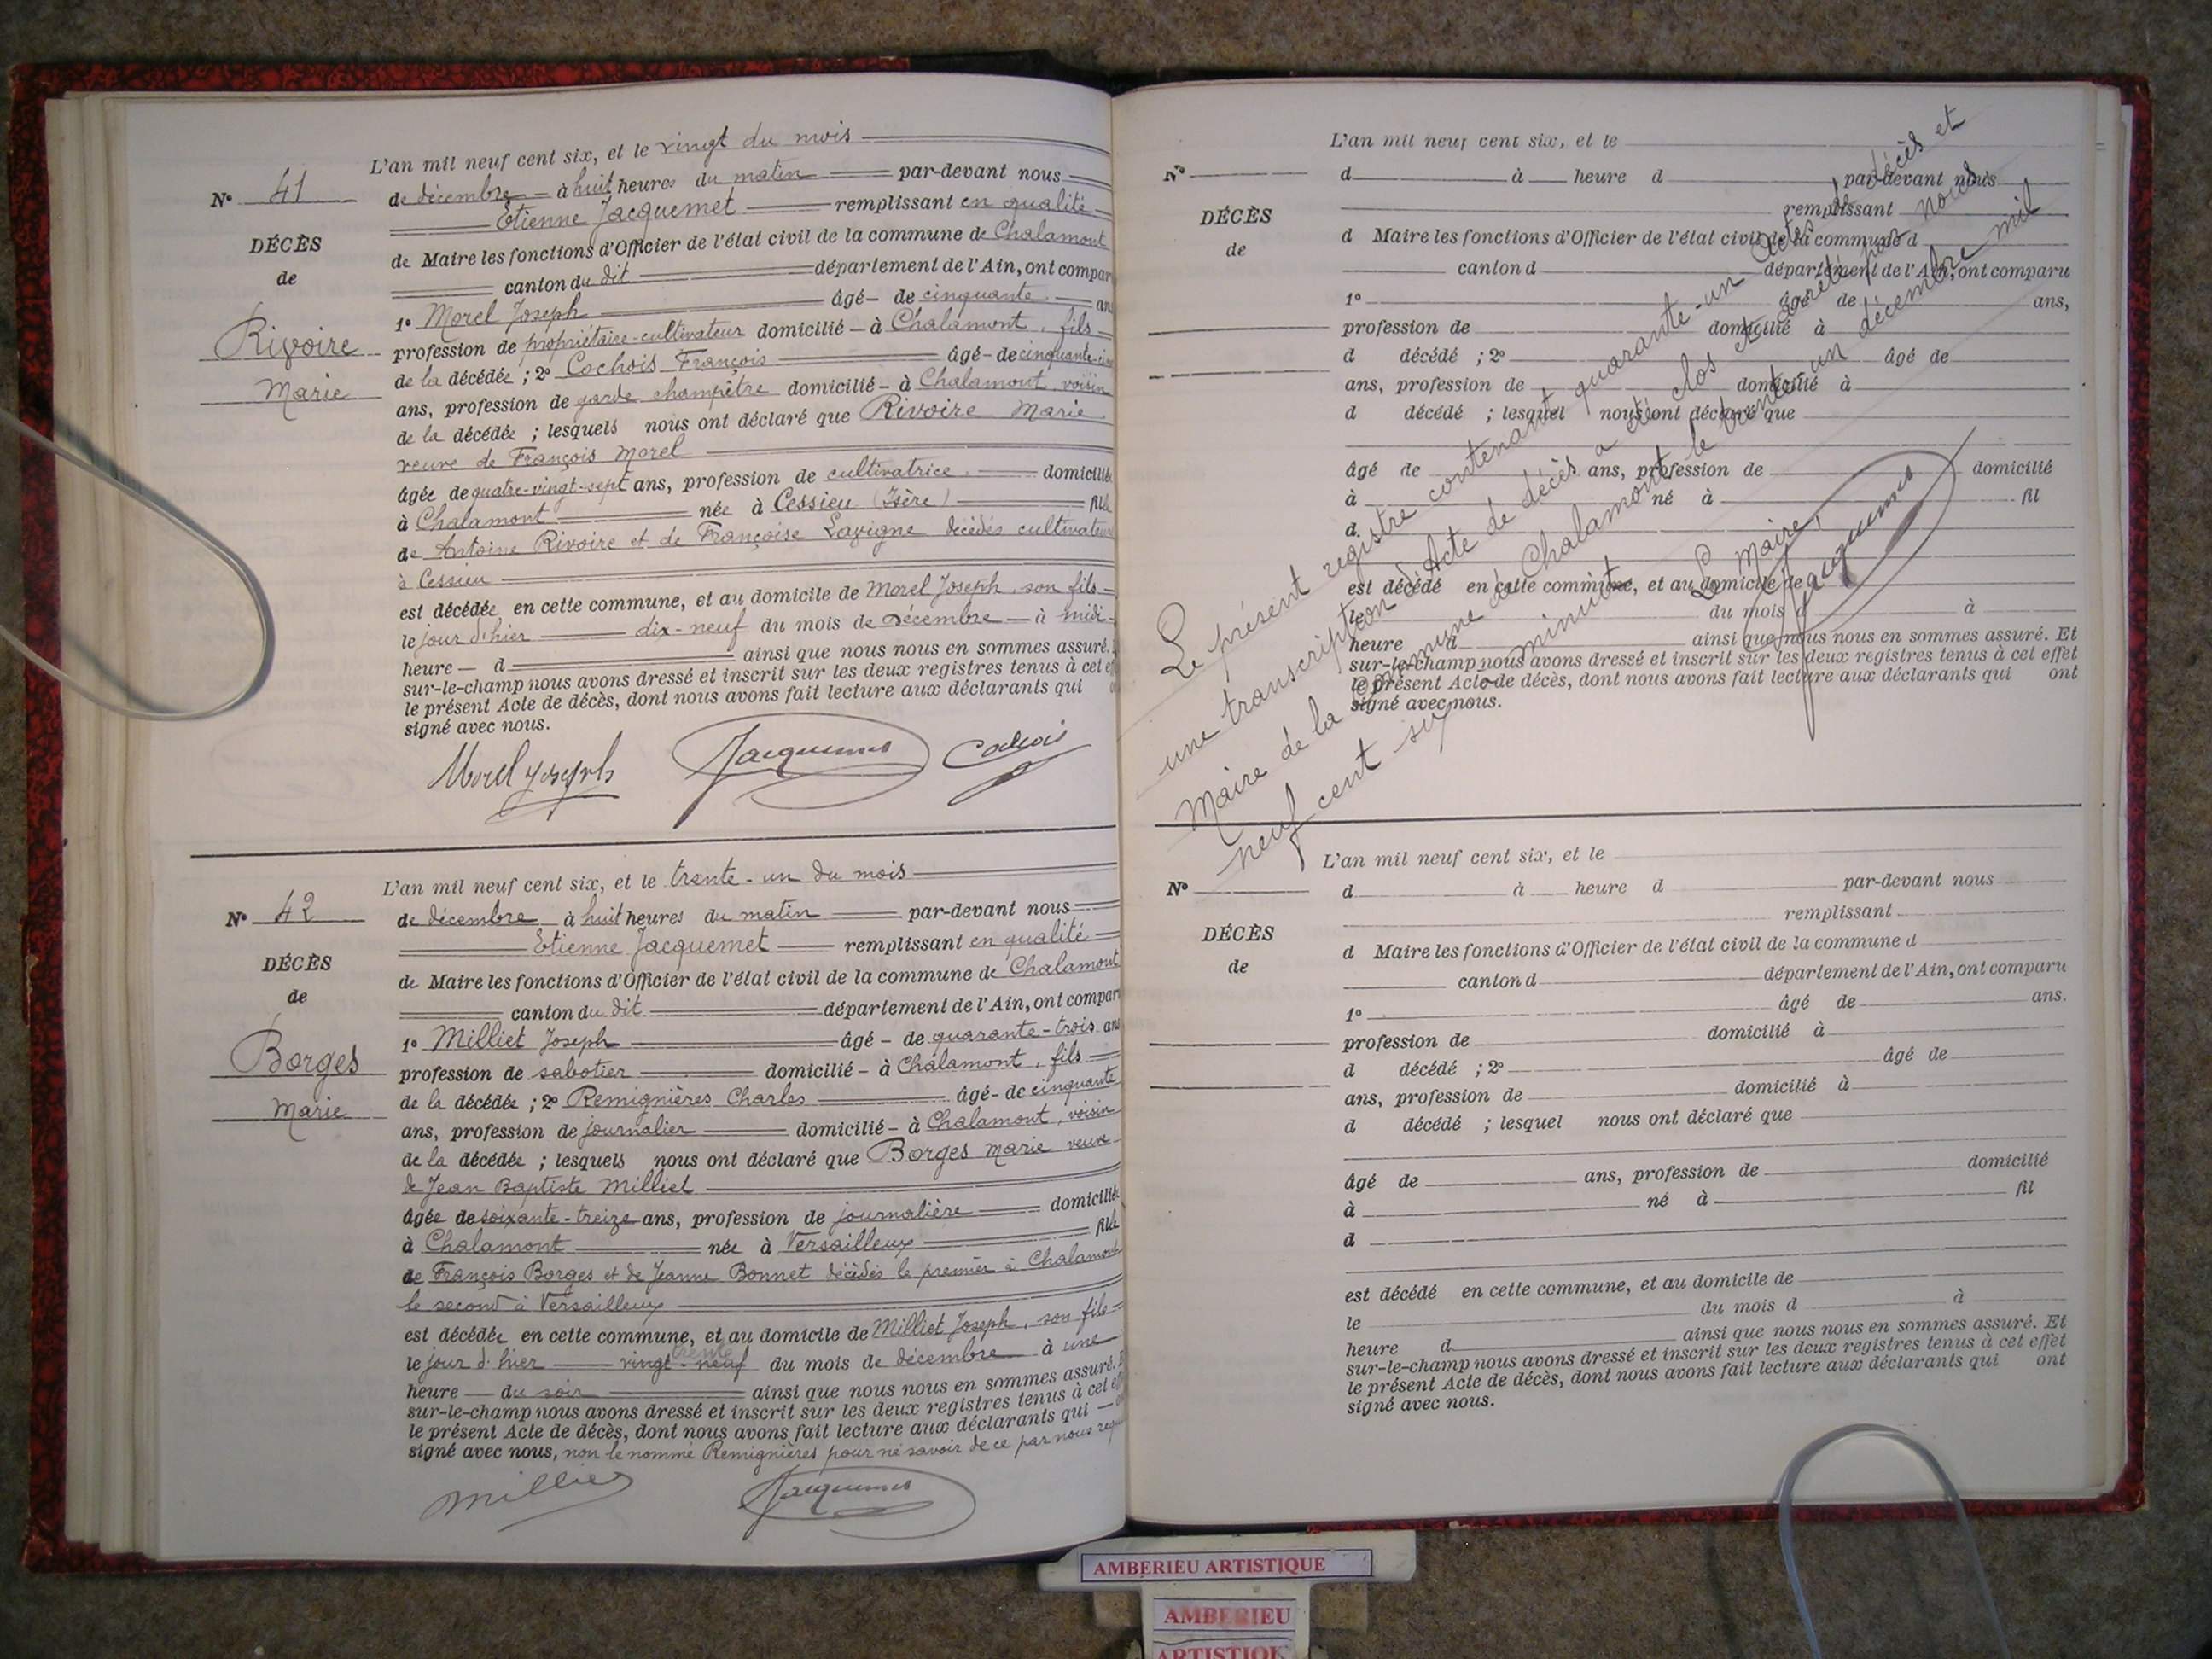 L'an mil neuf cent six, et le vingt du mois
N° 41
de décembre à huit heures du matin par-devant nous
Etienne Jacquemet remplissant en qualité
DÉCÈS
de Maire les fonctions d'Officier de l'état civil de la commune de Chalamont
de
canton du dit département de l'Ain, ont compar
1° Morel Joseph âgé de cinquante an
Rivoire
profession de propriétaire-cultivateur domicilié à Chalamont, fils
de la décédée ; 2° Cochois François âgé de cinquante-cinq
Marie
ans, profession de garde champêtre domicilié à Chalamont, voisin
de la décédée ; lesquels nous ont déclaré que Rivoire Marie
veuve de François Morel
âgée de quatre-vingt-sept ans, profession de cultivatrice domiciliée
à Chalamont née à Cessieu (Isère) fille
de Antoine Rivoire et de Françoise Lavigne décédés cultivateurs
à Cessieu
est décédée en cette commune, et au domicile de Morel Joseph, son fils
le jour d'hier dix-neuf du mois de Décembre à midi
heure d ainsi que nous nous en sommes assuré.
sur-le-champ nous avons dressé et inscrit sur les deux registres tenus à cet ef
le présent Acte de décès, dont nous avons fait lecture aux déclarants qui
signé avec nous.
Morel Joseph Jacquemet Cochois
L'an mil neuf cent six, et le trente-un du mois
N° 42
de décembre à huit heures du matin par-devant nous
Etienne Jacquemet remplissant en qualité
DÉCÈS
de Maire les fonctions d'Officier de l'état civil de la commune de Chalamont
de
canton du dit département de l'Ain, ont compar
1° Milliet Joseph âgé de quarante-trois ans
Borges
profession de sabotier domicilié à Chalamont, fils
de la décédée ; 2° Remignières Charles âgé de cinquante
Marie
ans, profession de journalier domicilié à Chalamont, voisin
de la décédée ; lesquels nous ont déclaré que Borges Marie veuve
de Jean Baptiste Milliet
âgée de soixante-treize ans, profession de journalière domiciliée
à Chalamont née à Versailleux fille
de François Borges et de Jeanne Bonnet décédés le premier à Chalamont
le second à Versailleux
est décédée en cette commune, et au domicile de Milliet Joseph, son fils
trente
le jour d'hier vingt-neuf du mois de décembre à une
heure du soir ainsi que nous nous en sommes assuré.
sur-le-champ nous avons dressé et inscrit sur les deux registres tenus à cet ef
le présent Acte de décès, dont nous avons fait lecture aux déclarants qui
signé avec nous, non le nommé Remignières pour ne savoir de ce par nous requ
Milliet Jacquemet
L'an mil neuf cent six, et le
N°
d à heure d par-devant nous
remplissant
DÉCÈS
d Maire les fonctions d'Officier de l'état civil de la commune d
de
canton d département de l'Ain, ont comparu
1° âgé de ans,
profession de domicilié à
d décédé ; 2° âgé de
ans, profession de domicilié à
d décédé ; lesquel nous ont déclaré que
âgé de ans, profession de domicilié
à né à fil
d
est décédé en cette commune, et au domicile de
le du mois d à
heure d ainsi que nous nous en sommes assuré. Et
sur-le-champ nous avons dressé et inscrit sur les deux registres tenus à cet effet
le présent Acte de décès, dont nous avons fait lecture aux déclarants qui ont
signé avec nous.
Le présent registre contenant quarante-un Actes de décès et
une transcription d'Acte de décès a été clos et arrêté par nous
Maire de la Commune de Chalamont le trente-un décembre mil
neuf cent six à minuit
Le Maire,
Jacquemet
L'an mil neuf cent six, et le
N°
d à heure d par-devant nous
remplissant
DÉCÈS
d Maire les fonctions d'Officier de l'état civil de la commune d
de
canton d département de l'Ain, ont comparu
1° âgé de ans.
profession de domicilié à
d décédé ; 2° âgé de
ans, profession de domicilié à
d décédé ; lesquel nous ont déclaré que
âgé de ans, profession de domicilié
à né à fil
d
est décédé en cette commune, et au domicile de
le du mois d à
heure d ainsi que nous nous en sommes assuré. Et
sur-le-champ nous avons dressé et inscrit sur les deux registres tenus à cet effet
le présent Acte de décès, dont nous avons fait lecture aux déclarants qui ont
signé avec nous.
AMBERIEU ARTISTIQUE
AMBERIEU
ARTISTIQ